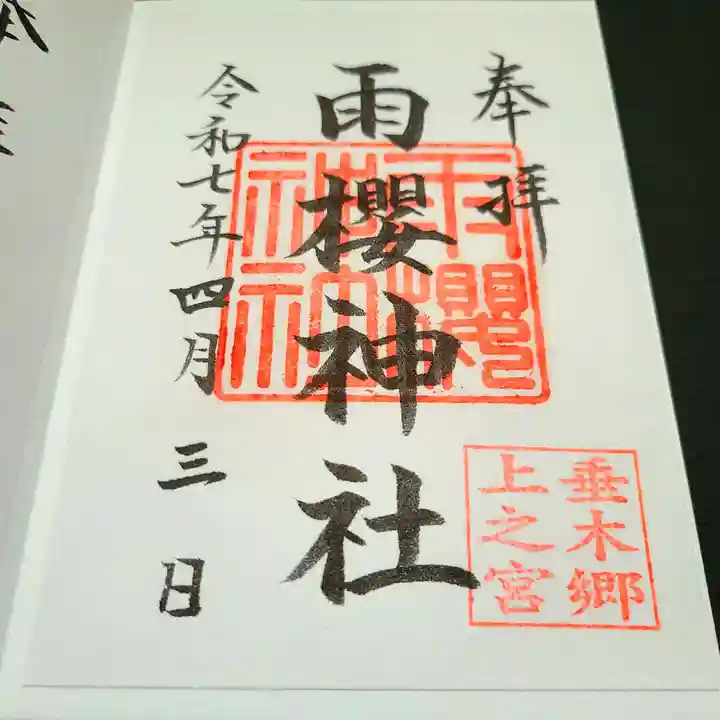 奉拝
雨櫻神社
雨櫻
神社
神印
垂木郷
上之宮
令和七年四月三日